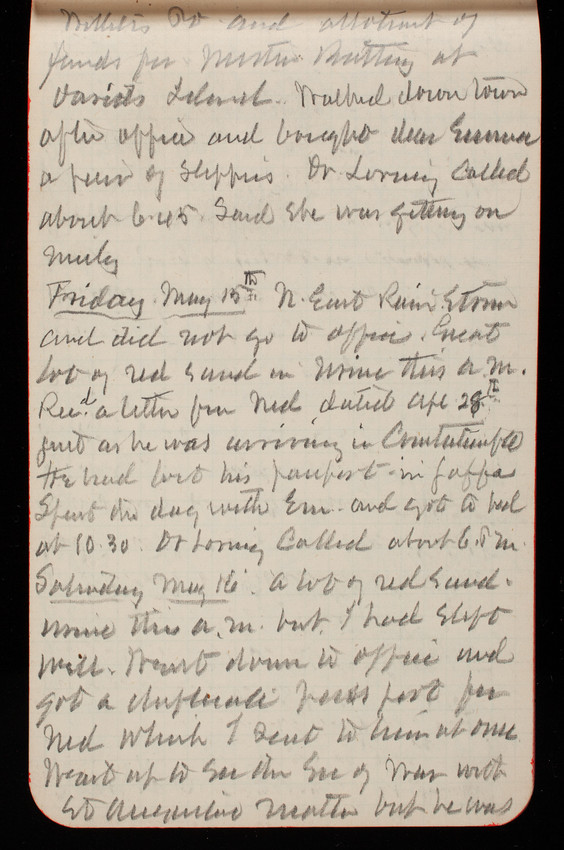 Willets Pt and allotment of
funds for Mortar Battery at
Davids Island. Walked down town
after office and bought dear Emma
a pair of slippers. Dr Loring Called
about 6.45. Said she was getting on
nicely
Friday May 15th N. East Rain Storm
and did not go to office. Great
lot of red sand in urine this a.m.
Recd a letter from Ned dated Apl 28th
just as he was arriving in
He had lost his passport in Jaffa
Spent the day with Em. and got to bed
at 10.30. Dr Loring Called about 6 P.M.
Saturday May 16. A lot of red sand.
urine this a.m. but I had slept
well. Went down to office and
got a duplicate passport for
Ned which I sent to him at once
Went up to see the Sec of War with
St matter but he was